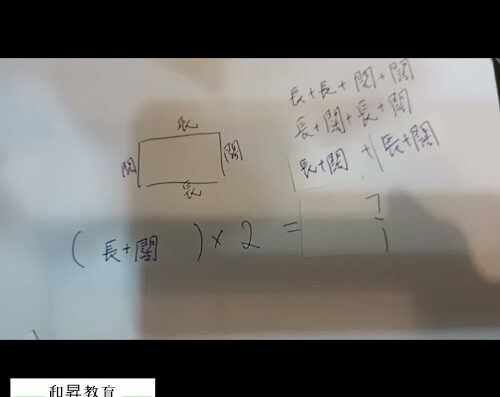 長+長+闊+闊
長+闊+長+闊
長+闊 + 長+闊
長
闊 闊
長
(長+闊)×2=
和昇教育